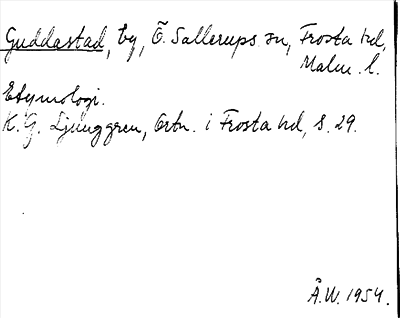 Guddastad, by, Ö. Sallerups sn, Frosta hd,
Malm. l.
Etymologi.
K. G. Ljunggren, Ortn. i Frosta hd, s. 29.
Å.W. 1954.